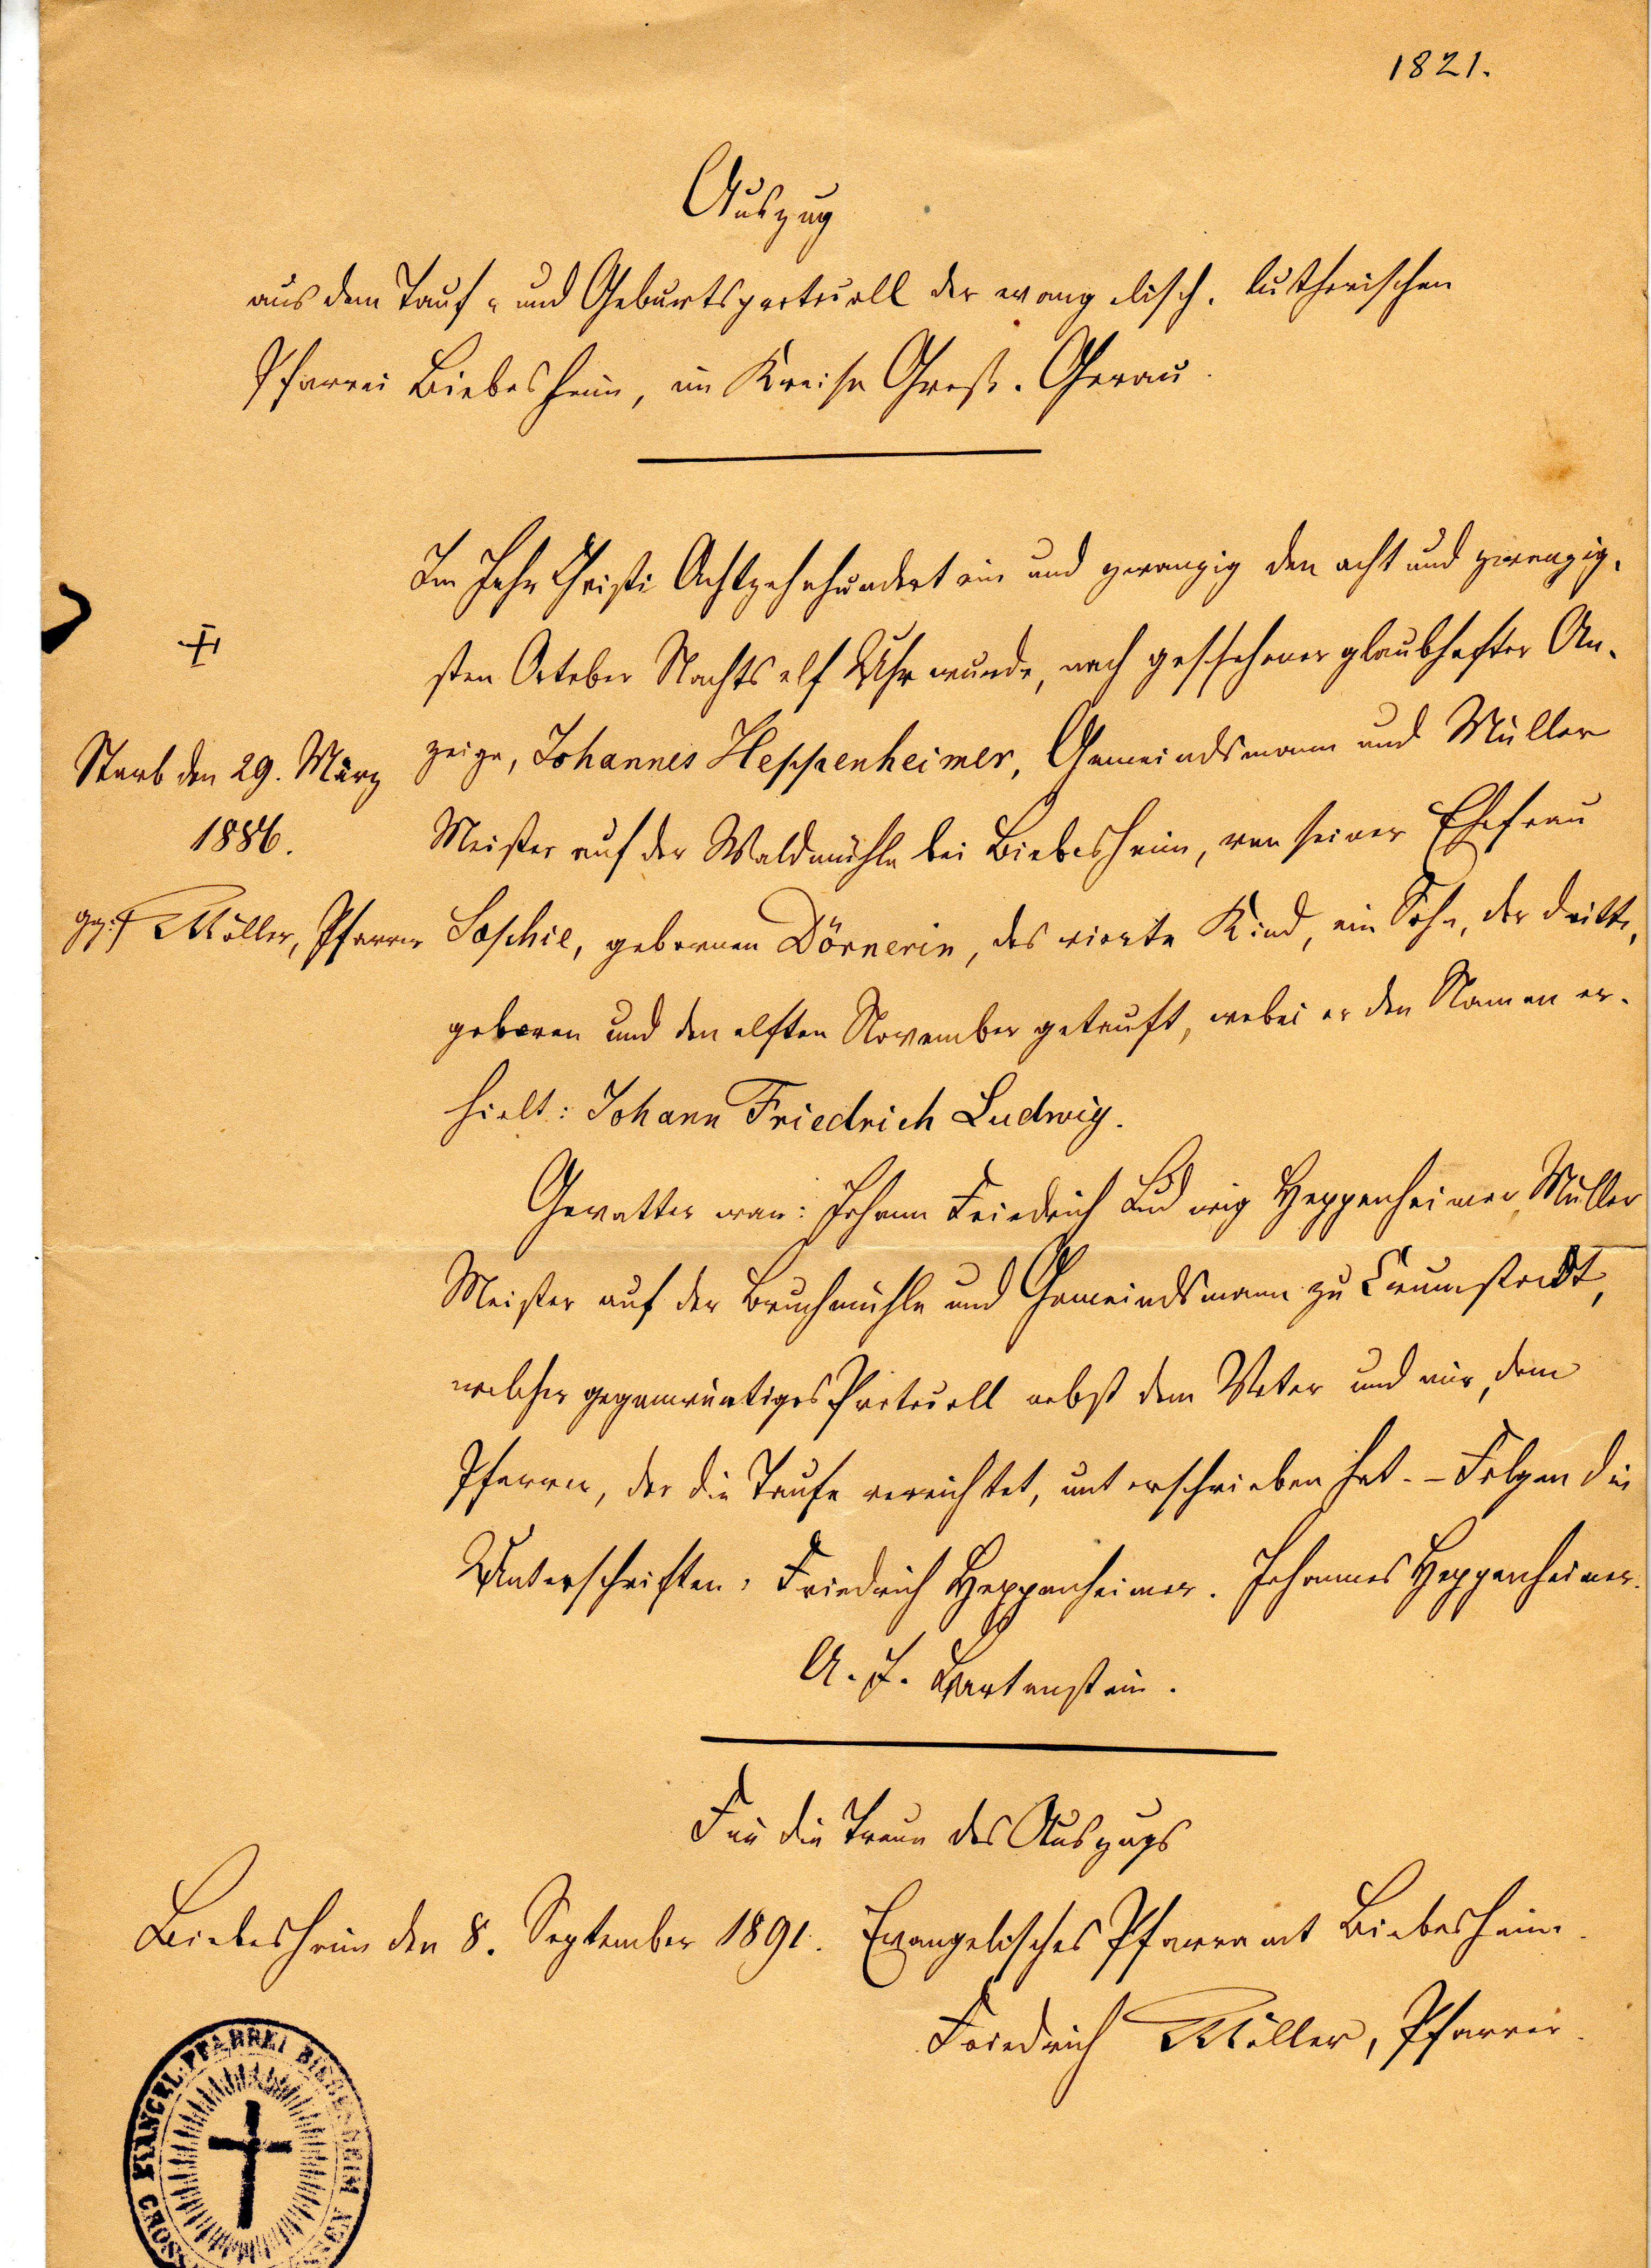 1821.
Auszug
aus dem Tauf- und Geburtsprotocoll der evangelisch-lutherischen
Pfarrei Biebesheim, im Kreise Groß-Gerau.
Im Jahr Christi Achtzehnhundert ein und zwanzig den acht und zwanzig-
sten October Nachts elf Uhr wurde, nach geschehener glaubhafter An-
zeige, Johannes Heppenheimer, Gemeindsmann und Müller
Meister auf der Waldmühle bei Biebesheim, von seiner Ehefrau
Sophie, gebornen Dörnerin, das vierte Kind, ein Sohn, der dritte,
geboren und den elften November getauft, wobei er den Namen er-
hielt: Johann Friedrich Ludwig.
Gevatter war: Johann Friedrich Ludwig Heppenheimer, Müller
Meister auf der Bruchmühle und Gemeindsmann zu Crumstadt,
welcher gegenwärtiges Protocoll nebst dem Vater und mir, dem
Pfarrer, der die Taufe verrichtet, unterschrieben hat. – Folgen die
Unterschriften: Friedrich Heppenheimer. Johannes Heppenheimer.
A. J. Hartenstein.
+
Starb den 29. März
1886.
gez: F Müller, Pfarrer
Für die Treue des Auszugs
Biebesheim den 8. September 1891. Evangelisches Pfarramt Biebesheim.
Friedrich Müller, Pfarrer.
EVANGEL. PFARREI BIEBESHEIM